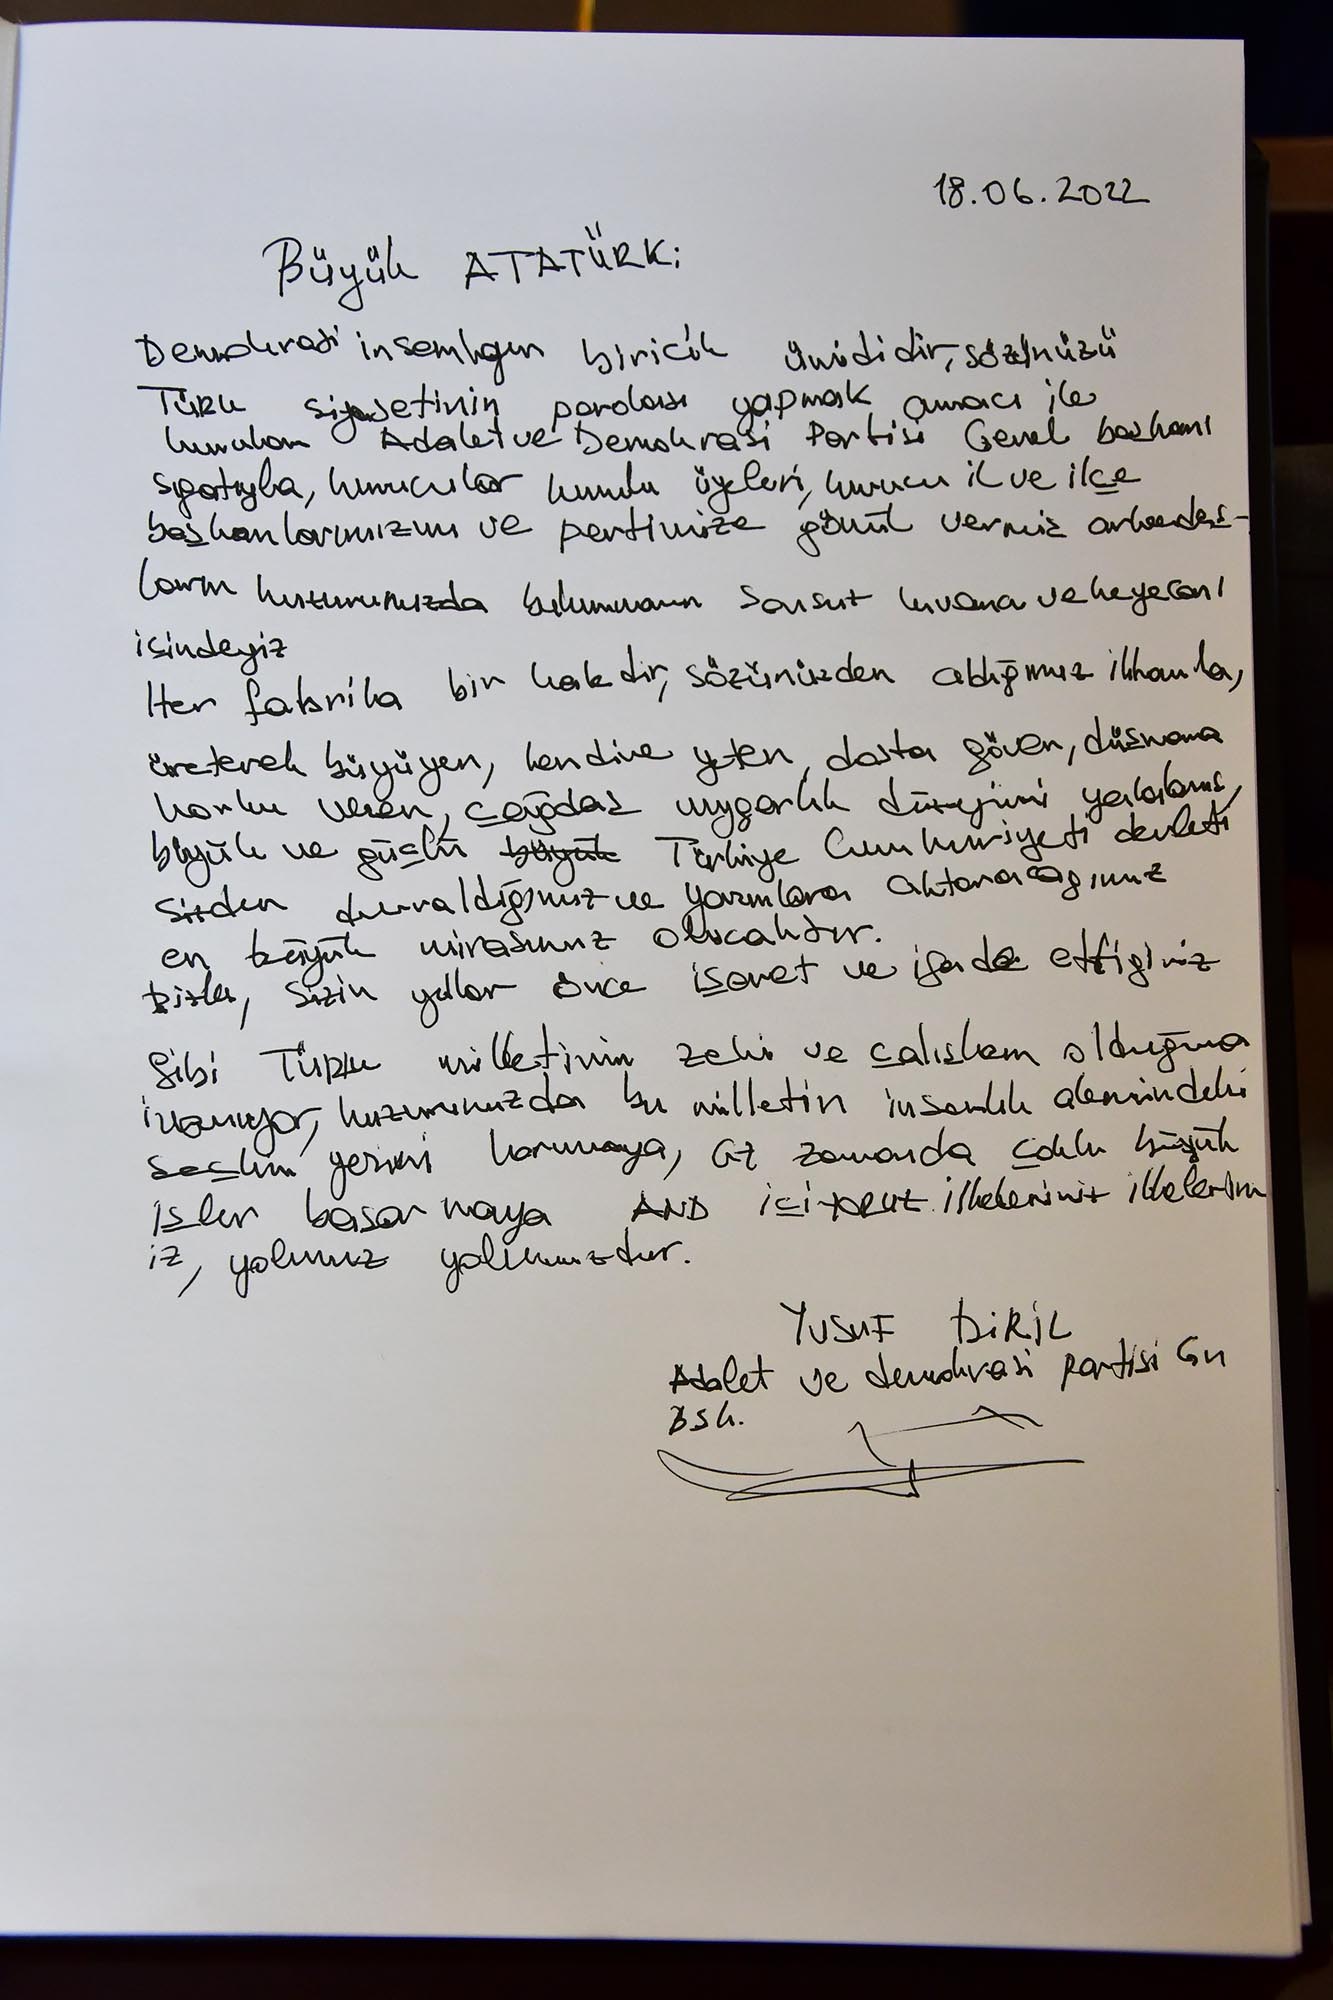 18.06.2022
Büyük ATATÜRK;
Demokrasi insanlığın biricik ümididir, sözünüzü
Türk siyasetinin parolası yapmak amacı ile
kurulan Adalet ve Demokrasi Partisi Genel başkanı
sıfatıyla, kurucular kurulu üyeleri, kurucu il ve ilçe
başkanlarımızın ve partimize gönül vermiş arkadaş-
ların huzurunuzda bulunmanın sonsuz kıvancı ve heyecanı
içindeyiz
Her fabrika bir kaledir, sözünüzden aldığımız ilhamla,
üreterek büyüyen, kendine yeten, dosta güven, düşmana
korku veren, çağdaş uygarlık düzeyini yakalamış,
büyük ve güçlü büyük Türkiye Cumhuriyeti devleti
sizden devraldığımız ve yarınlara aktaracağımız
en büyük mirasımız olacaktır.
bizler, sizin yıllar önce işaret ve ifade ettiğiniz
gibi Türk milletinin zeki ve çalışkan olduğuna
inanıyor, huzurunuzda bu milletin insanlık alemindeki
seçkin yerini korumaya, az zamanda çoklu büyük
işler başarmaya AND içiyoruz. İlkeleriniz ilkelerim
iz, yolunuz yolumuzdur.
YUSUF DİRİL
Adalet ve demokrasi partisi Gn
Bşk.